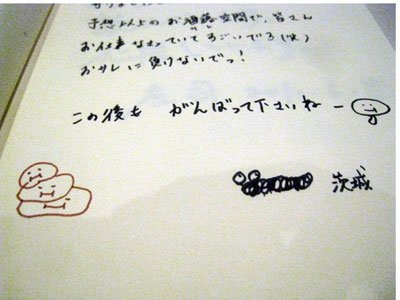 予想以上のお洒落空間で、皆さん
お仕事なさっていてすごいでる(笑)
オサレに負けないでっ!
この後も がんばって下さいねー
茨城